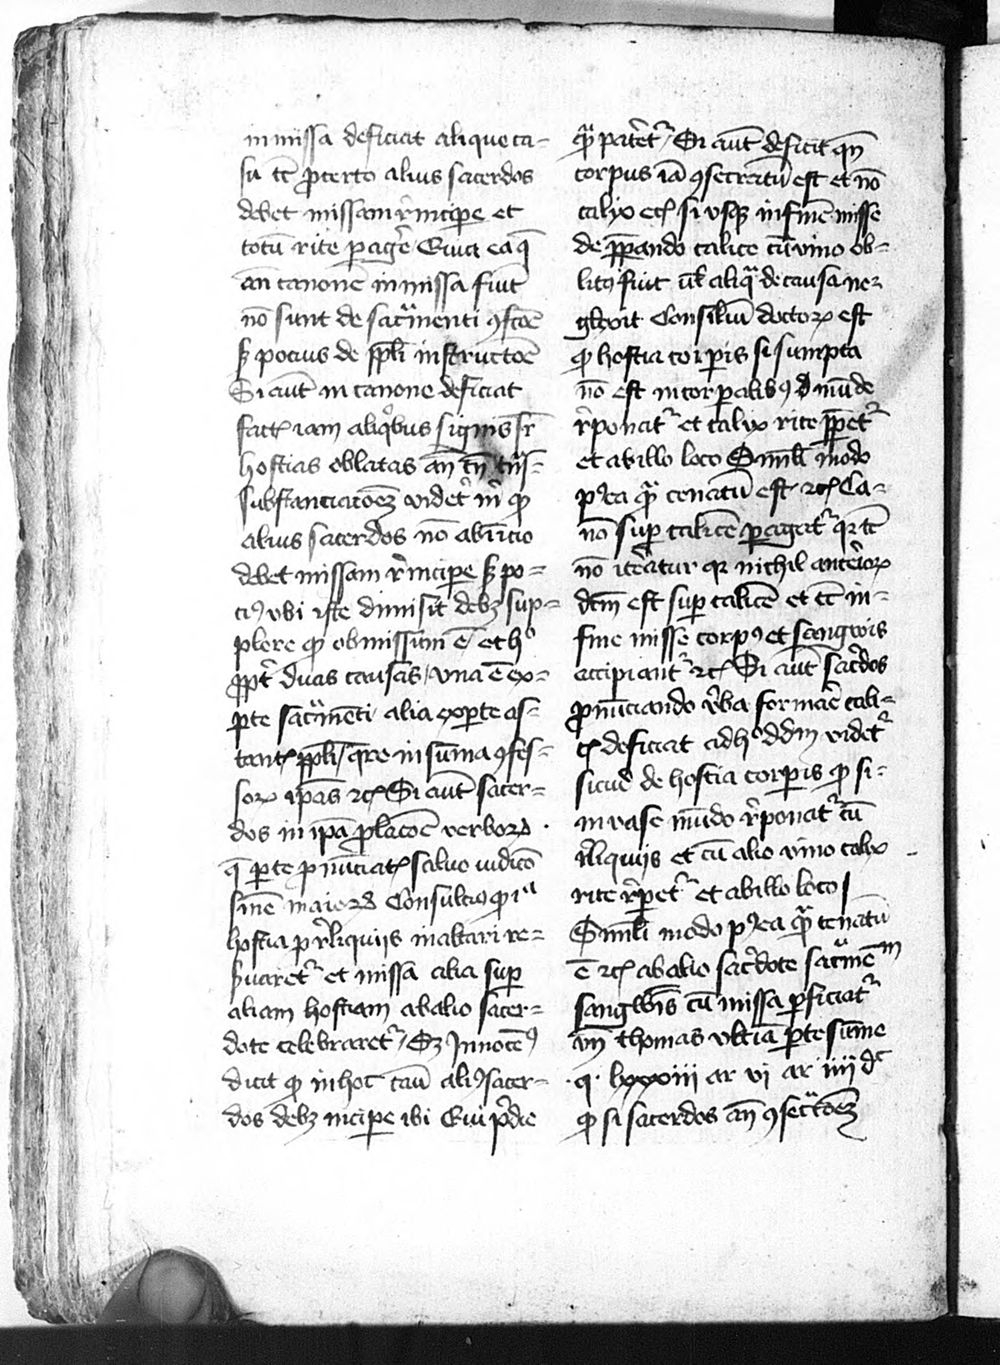 in missa deficiat aliquo ca-
su tc̄ ꝓcerto alius sacerdos
debet missam r̄incipe et
totū rite ꝑagē Quia ea q̄
an̄ canonē in missa fiūt
nō sunt de sacͣmenti ꝯfcōe
sꝫ pocius de ppl̄i instructōe
Si aūt in canone deficiat
fact̄ iam aliqͥbus signis sr̄
hostias oblatas an̄ tn̄ trās-
substanciacōeꝫ videt᷑ m̄ ꝙ
alius sacerdos nō ab inicio
debet missam r̄incipe sꝫ po-
ciꝰ vbi iste dimisit debꝫ sup-
plere ꝙ obmissum ē et hͦ
ꝓpt̄ duas causas / vna ē ex
ꝑte sacͣmēti / alia ex ꝑte as-
tant̄ ppl̄i / qͬe in sūma ꝯfes-
soꝝ ipās ⁊c̄ Si aūt sacer-
dos in ip̄a ꝓlacōe verboꝝ
q̄ ꝑte ꝓnūciat̄ saluo iudicō
sn̄ie maioꝝ Consultiꝰ ꝙ iͣ
hostia ꝑ r̄liquijs in altari re-
ẜuaret᷑ et missa alia sup̄
aliam hostiam ab alio sacer-
dote celebraret᷑ / Sꝫ Innocēꝰ
dicit ꝙ in hoc casū aliꝰ sacer-
dos debꝫ incipe ibi Qui pͥdie
qͣ patēt᷑ / Si aūt deficit qn̄
corpus iā ꝯsecratū est et nō
calix ec̄ si vsqꝫ in finē misse
de p̄ꝑando calice cū vino ob-
litꝰ fuit ul̓ aliqͣ de causa neg
glexit Consiliū doctoꝝ est
ꝙ hostia corꝑis si sumpta
nō est in corꝑalibꝰ mūde
r̄ponat᷑ et calix rite p̄ꝑet᷑
et ab illo loco Simili modo
pꝰea qͣ cenatū est ⁊c̄ Ca-
nō suꝑ calicē ꝑagat᷑ qꝛ tc̄
nō itēatur qꝛ nichil anteͥoꝝ
dcm̄ est suꝑ calicē et tc̄ in
fine misse corpꝰ et sangwis
accipiant᷑ ⁊c̄ Si aūt sacͦdos
ꝓnūciando v̓ba forme cali-
c̄ deficiat ad hͦ dd̄m videt᷑
sicut de hostia corꝑis ꝙ si
in vase mūdo r̄ponat᷑ cū
r̄liquijs et cū alio vino calix
rite p̄ꝑet᷑ et ab illo loco
Simili modo pꝰea qͣ cenatū
ē ⁊c̄ ab alio sacͦdote sacͣmēᵐ
sangwīs cū missa ꝑficiat᷑
Vn̄ thomas vltīa ꝑte sūme
·q· lxxxiii ar vi ar iiii dᶜ
ꝙ si sacerdos an̄ ꝯsecͣcōeꝫ